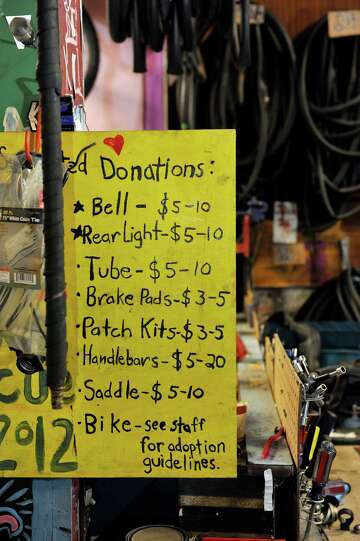 ted Donations:
★ Bell - $5-10
★ Rear Light - $5-10
· Tube - $5-10
· Brake Pads - $3-5
· Patch Kits - $3-5
· Handlebars - $5-20
· Saddle - $5-10
· Bike - see staff
for adoption
guidelines.
2012